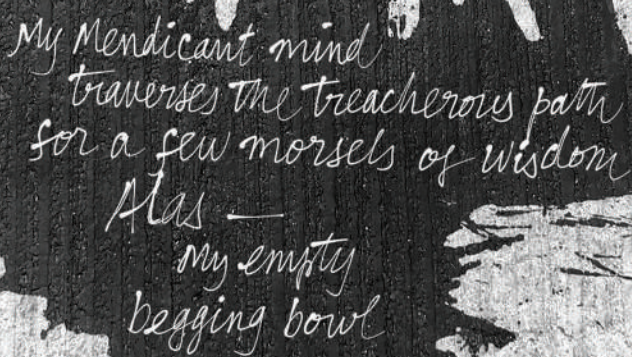 My Mendicant mind
traverses the treacherous path
for a few morsels of wisdom
Alas —
My empty
begging bowl